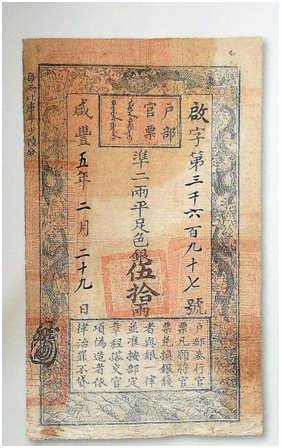 戶部
官票
啟字第三千六百九十七號
準二兩平足色銀伍拾兩
咸豐五年二月二十九日
戶部奏行官
票凡願將官
票兌換銀錢
者與銀一律
並准按部定
章程搭交官
項偽造者依
律治罪不貸
每兩比庫平少陸分